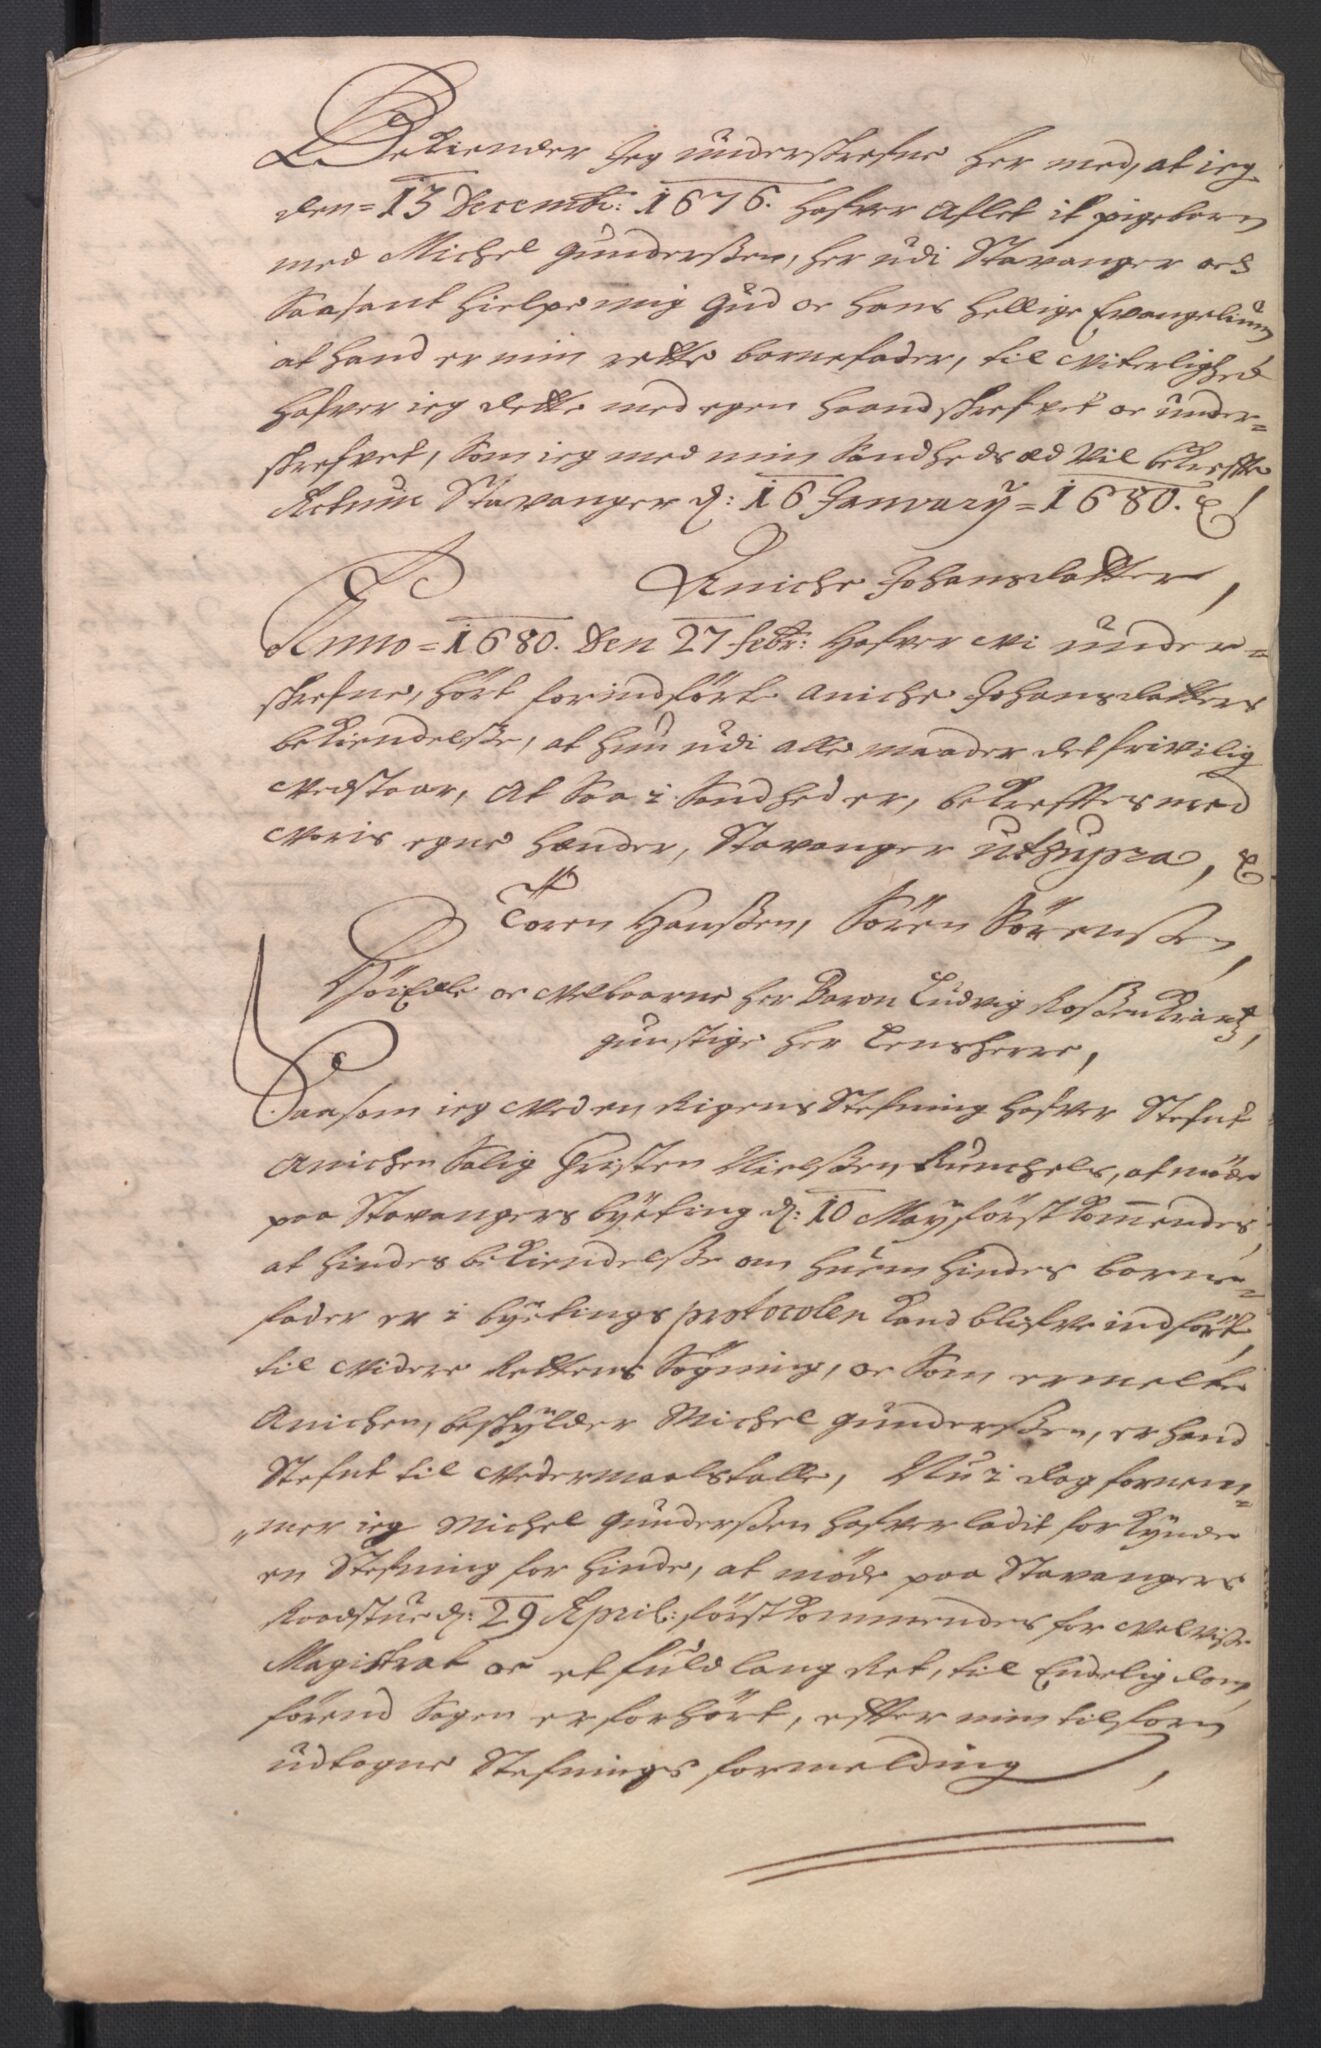 Bekiender Jeg underskrefne her med, at ieg
den = 13 Decembr: 1676. hafver aflet it pigebarn
med Michel Gunderßen, her udi Stavanger och
Saasant hielpe mig Gud oc hans hellige Evangelium
at hand er min rette barnefader, til Viterlighed
hafver ieg dette med egen haand skrefvet oc under-
skrefvet, som ieg med min Sandheds æd vil bekreffte
Actum Stavanger d: 16 January = 1680. &!
Aniche Johansdatter,
Anno = 1680. Den 27 febr: hafver vi under-
skrefne, hört forindförte Aniche Johansdatters
bekiendelße, at hun udi alle maader det frivilig
vedstaar, At Saa i Sandhed er, bekrefftes med
voris egne hænder, Stavanger ut supra, &
Toren Hanßen, Sören Sörenßen,
Höiedle oc velbaarne her Baron Ludvig Roßenkrantz,
gunstige her Lensherre,
Saasom ieg ved en Rigens Stefning hafver Stefnt
Anichen Salig Christen Nielßen Kunchels, at möde
paa Stavangers byëting d: 10 May förstkommendes,
at hindes bekiendelße om huem hindes barne-
fader er i byëtings protocolen kand blifve indfört,
til videre Rettens Sögning, oc Som ermelte
Anichen, beskylder Michel Gunderßen, er hand
Stefnt til vedermaals talle, Nu i dag fornem-
"mer ieg Michel Gunderßen hafver ladit forkynde
en Stefning for hinde, at möde paa Stavangers
Raadstue d: 29 April: förstkommendes for velviße
Magistrat oc et fuldlang Ret, til Endelig dom,
förend Sagen er forhört, effter min tilforn
udtagne Stefnings formelding,